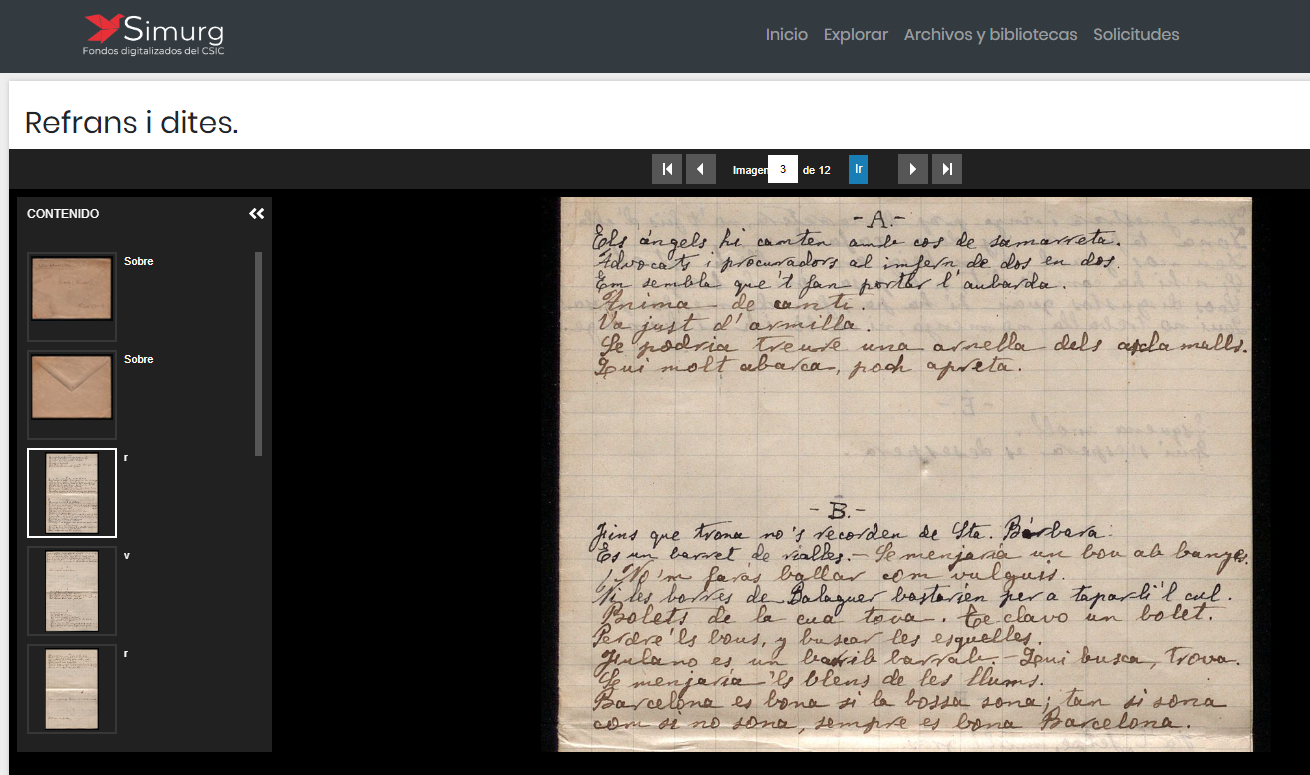 Simurg
Fondos digitalizados del CSIC
Inicio Explorar Archivos y bibliotecas Solicitudes
Refrans i dites.
Imagen 3 de 12 Ir
CONTENIDO
Sobre
Sobre
r
v
r
-A.-
Els ángels hi canten amb cos de samarreta.
Advocats i procuradors al infern de dos en dos.
Em sembla que 't fan portar l'aubarda.
Anima de canti.
Va just d'armilla.
Se podria treure una arnella dels asclamalls.
Qui molt abarca, poch apreta.
-B.-
Fins que trona no's recorden de Sta. Bárbara.
Es un barret de rialles. - Se menjaria un bou ab banyes.
¡No'm farás ballar com vulguis.
Ni les borres de Balaguer bastarien per a taparli'l cul.
Bolets de la cua tova. Te clavo un bolet.
Perdre'ls bous, y buscar les esquelles.
Fulano es un barrib barrab. - Qui busca, trova.
Se menjaria 'ls blens de les llums.
Barcelona es bona si la bossa sona; tan si sona
com si no sona, sempre es bona Barcelona.